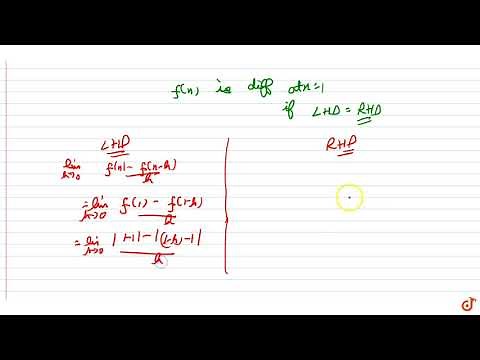 f(x) is diff at x=1
if LHD = RHD
LHD
lim h→0 f(x) - f(x-h) / h
= lim h→0 f(1) - f(1-h) / h
= lim h→0 |1-1| - |(1-h)-1| / h
RHD